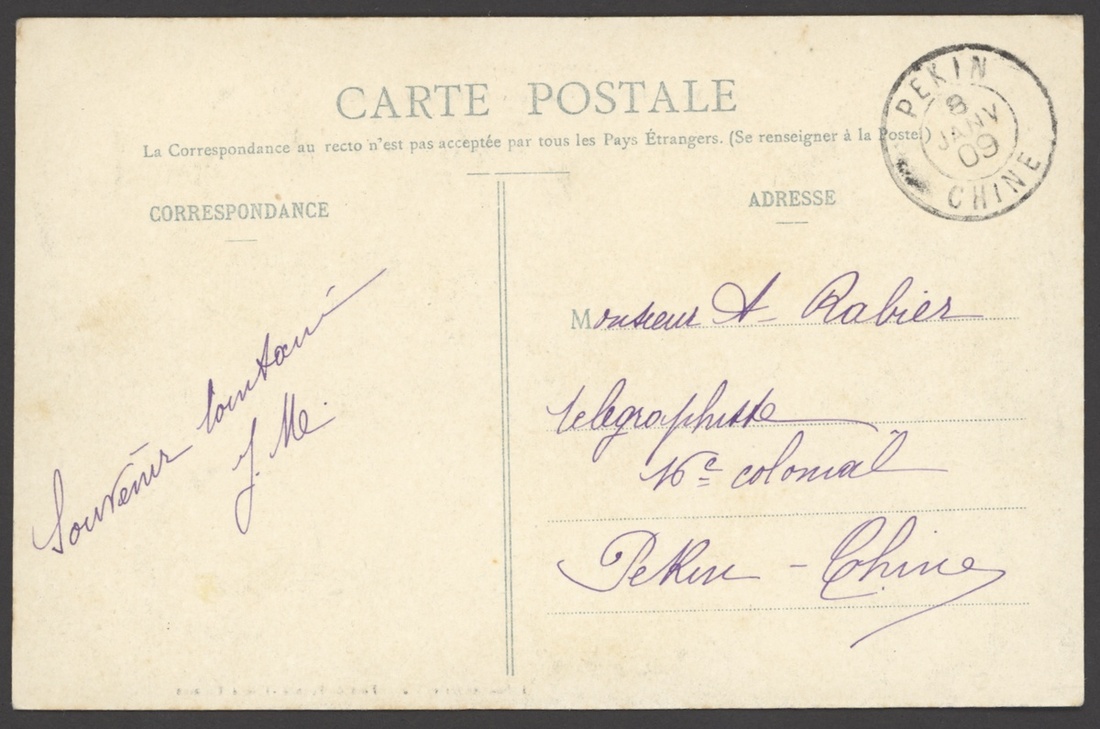 CARTE POSTALE
La Correspondance au recto n'est pas acceptée par tous les Pays Étrangers. (Se renseigner à la Poste)
CORRESPONDANCE
ADRESSE
PEKIN
8
JANV
09
CHINE
Souvenir lointain
J. M.
Monsieur A. Rabier
telegraphiste
16e colonial
Pekin - Chine